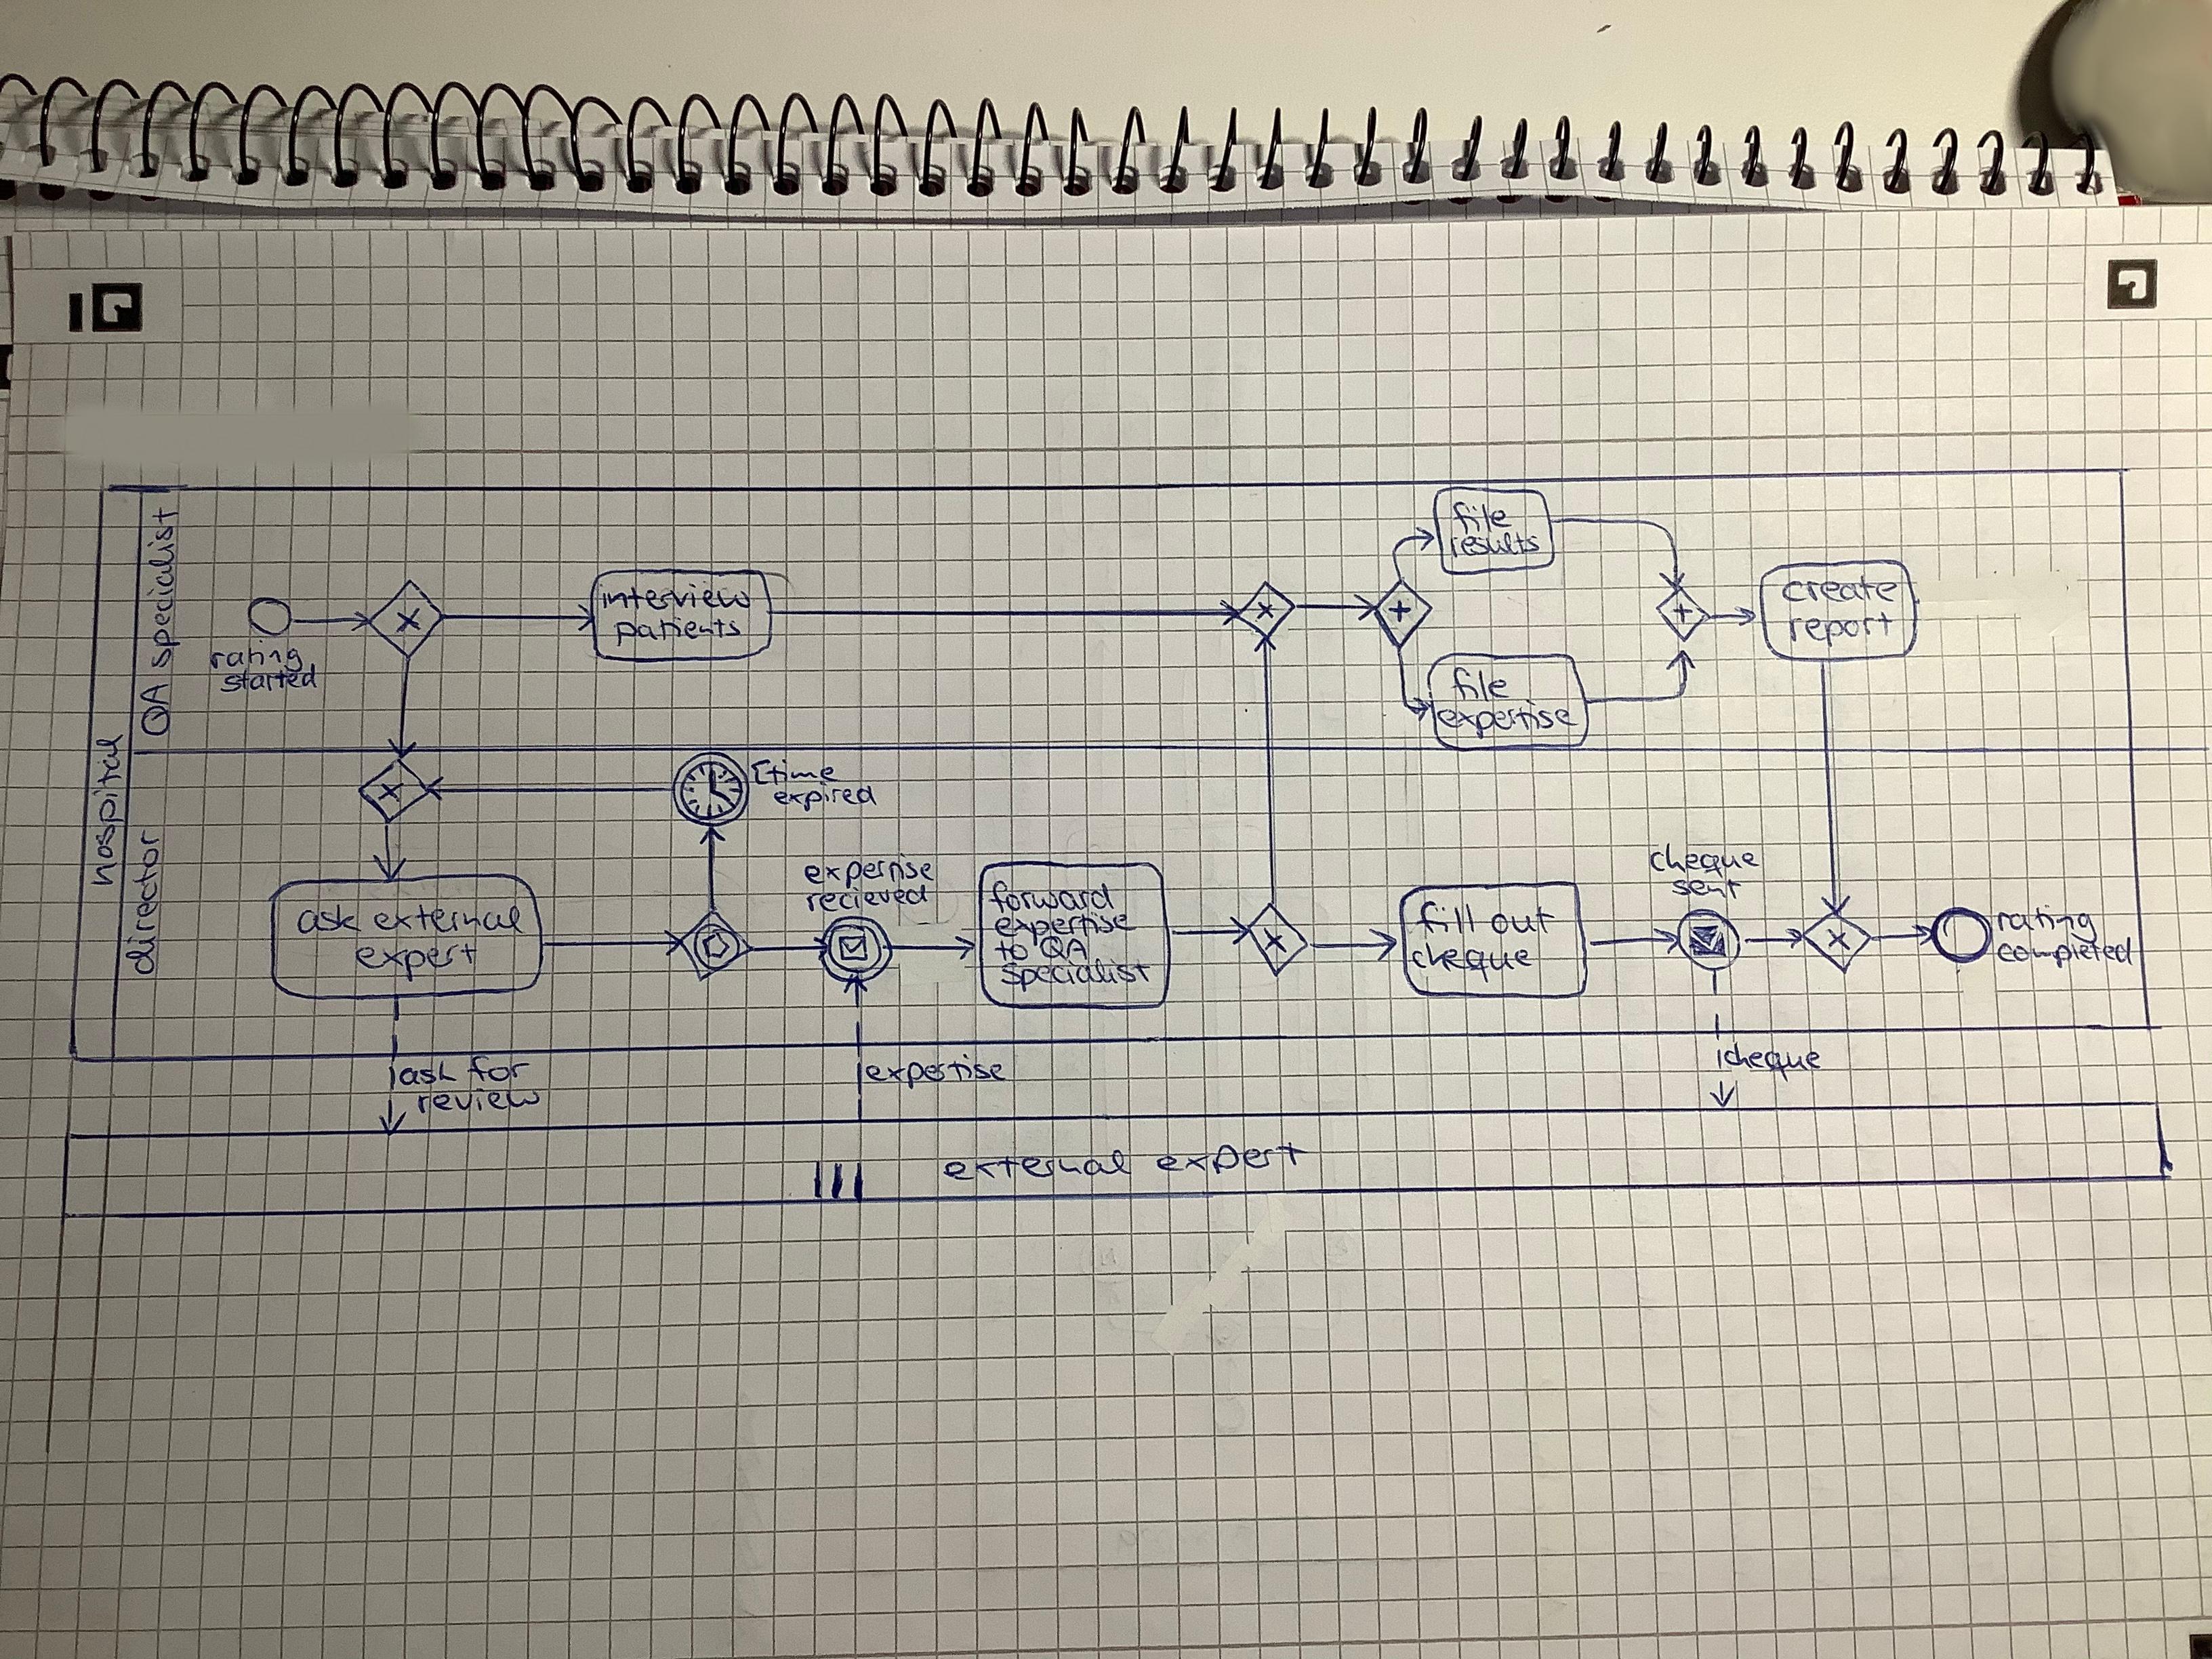 hospital
QA specialist
director
rating
started
interview
patients
file
results
file
expertise
create
report
[time
expired
ask external
expert
expertise
recieved
forward
expertise
to QA
specialist
fill out
cheque
cheque
sent
rating
completed
ask for
review
expertise
cheque
external expert